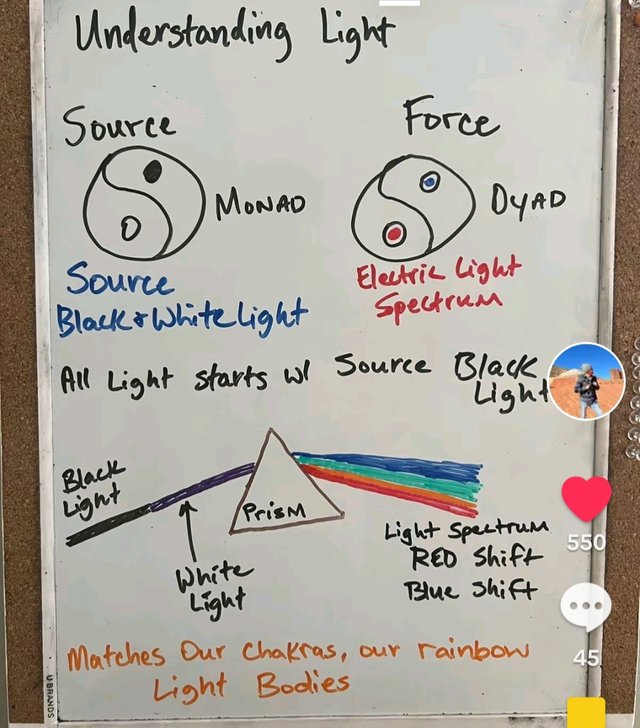 Understanding Light
Source
Force
MONAD
DYAD
Source
Black & White Light
Electric Light
Spectrum
All Light Starts w/ Source Black
Light
Black
Light
Prism
White
Light
Light Spectrum
RED Shift
Blue Shift
Matches Our Chakras, our rainbow
Light Bodies
UBRANDS
550
45